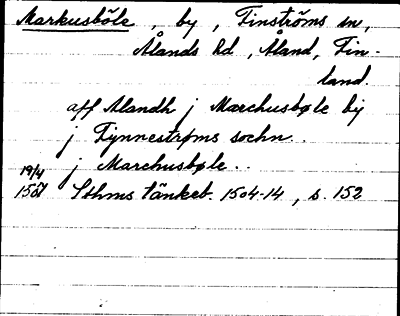 Markusböle, by, Finströms sn,
Ålands hd, Åland, Fin-
land.
aff Alandh j Marchusbøle by
j Fynnestrøms sochn.
19/4 j Marchusbøle..
Sthms tänkeb. 1504-14, s. 152